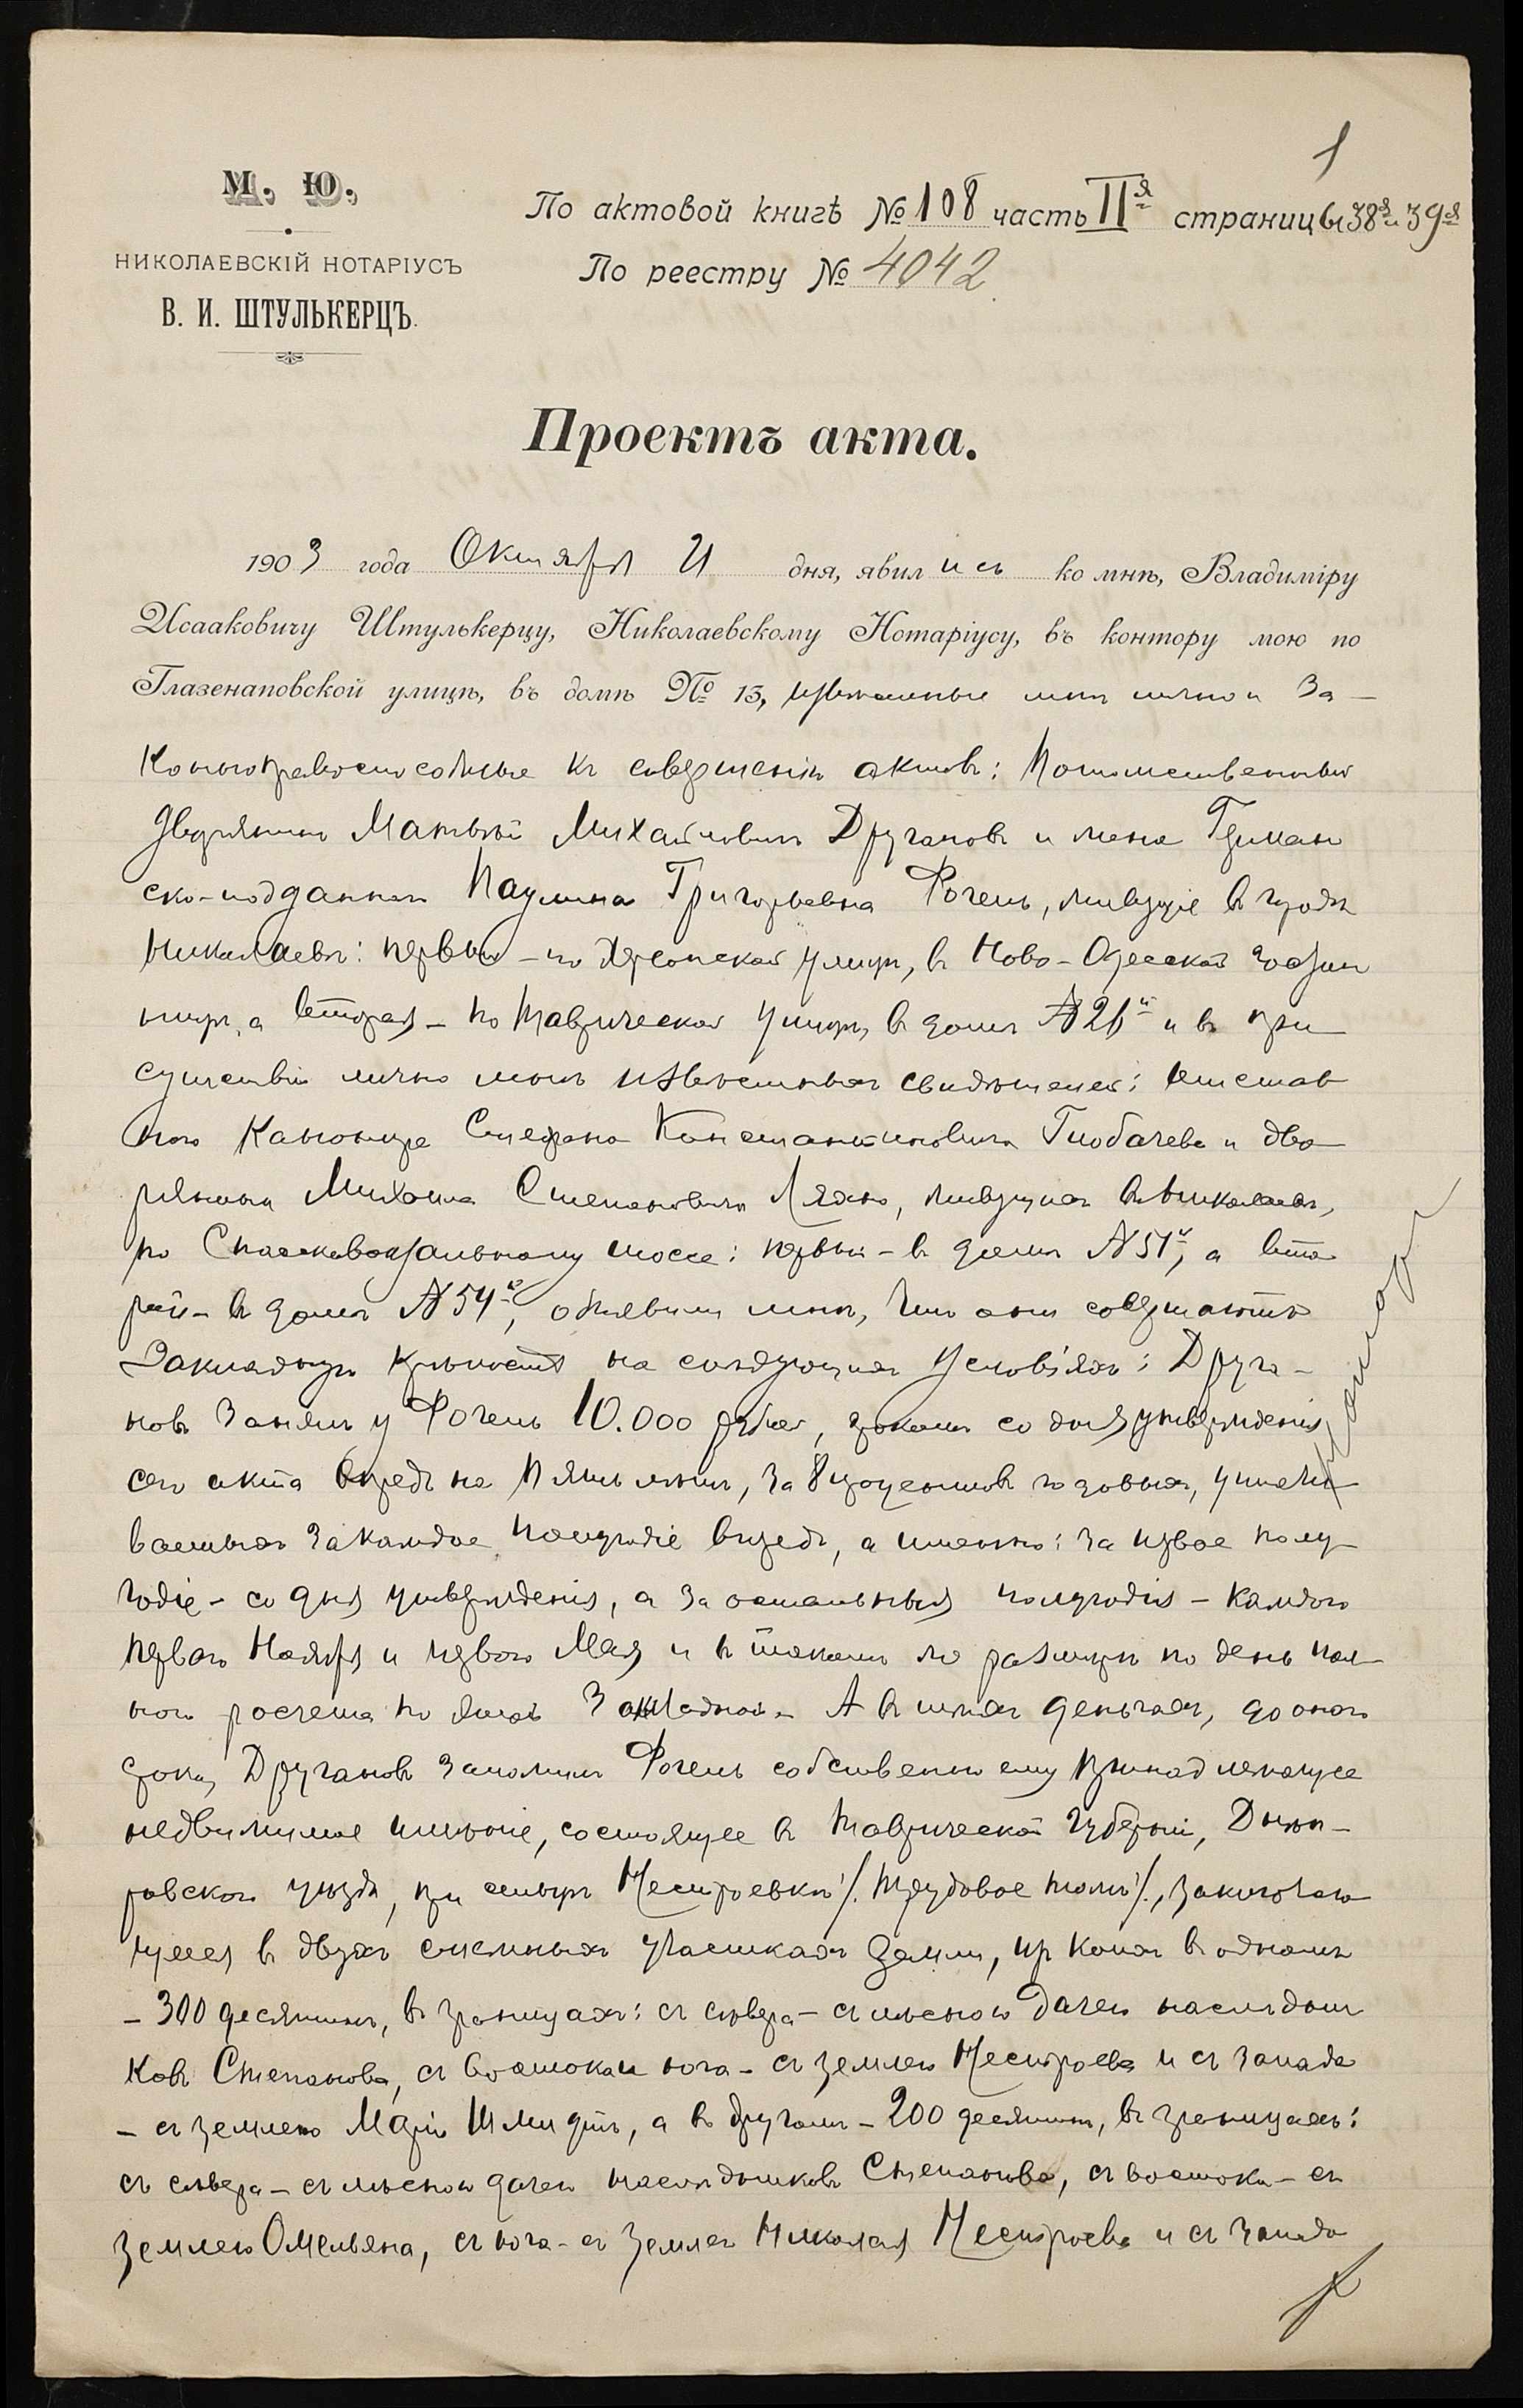 1
М. Ю.
НИКОЛАЕВСКІЙ НОТАРІУСЪ
В. И. ШТУЛЬКЕРЦЪ.
По актовой книгѣ № 108 часть IIя страницы 38я и 39я
По реестру № 4042
Проектъ акта.
1903 года Октября 21 дня, явились ко мнѣ, Владиміру
Исааковичу Штулькерцу, Николаевскому Нотаріусу, въ контору мою по
Глазенаповской улицѣ, въ домѣ № 13, извѣстные мнѣ лично и за-
конноправоспособные къ совершенію актовъ: Потомственный
дворянинъ Матвѣй Михайловичъ Друганов и жена Герман
ско-подданная Паулина Григорьевна Фогель, живущіе въ городѣ
Николаевѣ: первый - по Херсонской улицѣ, въ Ново-Одесской гостин
ницѣ, а вторая - по Таврической улицѣ, въ домѣ № 26й и въ при
сутствіи лично мнѣ извѣстныхъ свидѣтелей: отстав
ного Канонира Стефана Константиновича и дво
рянина Михаила Степановича живущихъ въ Николаевѣ,
по Спасковокзальному шоссе: первый - въ домѣ № 51й, а вто
рой - въ домѣ № 54й, объявили мнѣ, что они совершаютъ
Закладную крѣпость на слѣдующихъ условіяхъ: Друга-
новъ занялъ у Фогель 10.000 рублей, срокомъ со дня утвержденія
сего акта впредь на пять лѣтъ, за 8 процентовъ годовыхъ, уплачи
ваемыхъ за каждое полугодіе впредь, а именно: за первое полу
годіе - со дня утвержденія, а за остальныя полугодія - каждого
перваго Ноября и перваго Мая и въ такомъ же размѣрѣ по день пол
ного росчета по этой Закладной. А въ тѣхъ деньгахъ, до оного
срока, Друганов заложилъ Фогель собственно ему принадлежащее
недвижимое имѣніе, состоящее въ Таврической Губерніи, Днѣп-
ровскаго уѣзда, при сельцѣ Нестроевкѣ /. Трудовое тожъ /., заключаю
щееся въ двухъ смежныхъ участкахъ земли, изъ коихъ въ одномъ
- 300 десятинъ, въ границахъ: съ сѣвера - съ лѣсною дачею наслѣдни
ковъ Степанова, съ востока и юга - съ землею Нестроева и съ запада
- съ землею Маріи Шмидтъ, а въ другомъ - 200 десятинъ, въ границахъ:
съ сѣвера - съ лѣсною дачею наслѣдниковъ Степанова, съ востока - съ
землею Омельяна, съ юга - съ землею Николая Нестроева и съ запада